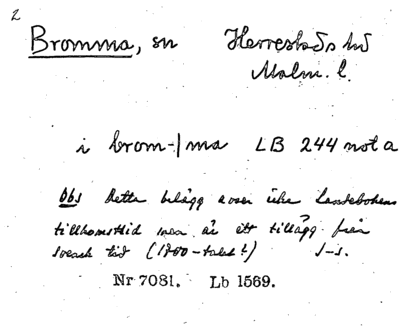 2
Bromma, sn Herrestads hd
Malm. l.
i brom-|ma LB 244 not a
Obs Detta belägg avser icke Landebokens
tillkomsttid men är ett tillägg från
svensk tid (1700-talet?) J-s.
Nr 7081. Lb 1569.